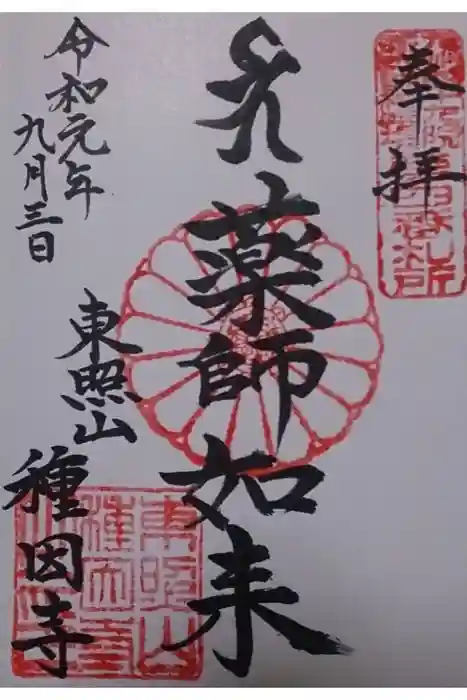 奉拝
薬師如来
東照山
種因寺
令和元年
九月三日
東照山
種因寺